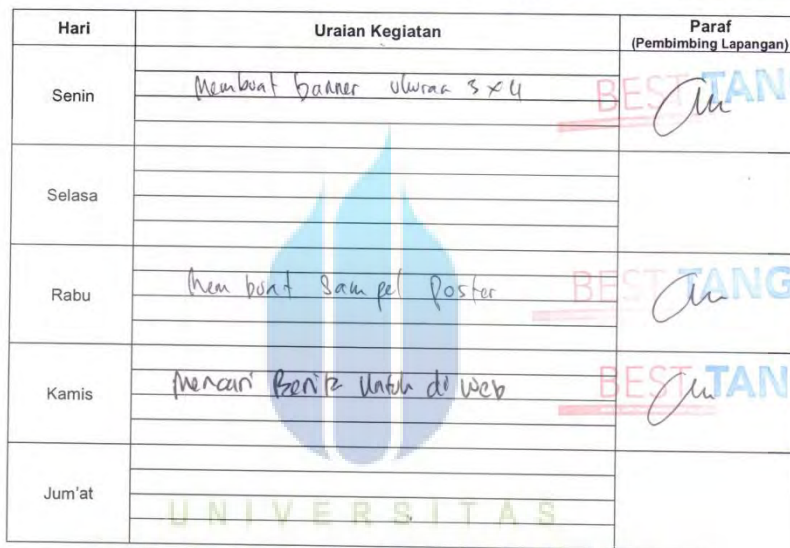 Hari Uraian Kegiatan Paraf
(Pembimbing Lapangan)
Senin Membuat banner ukuran 3 x 4 BEST TANG
Selasa
Rabu Membuat Sampel Poster BEST TANG
Kamis Mencari Berita Untuk di web BEST TAN
Jum'at
UNIVERSITAS